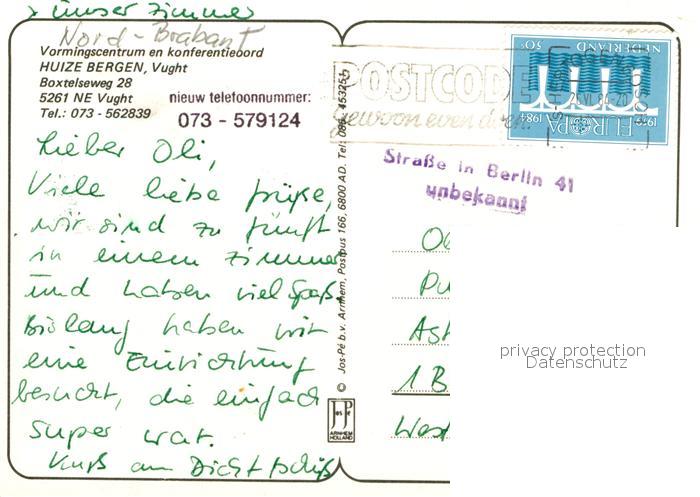 unser Zimmer
Nord-Brabant
Vormingscentrum en konferentieoord
HUIZE BERGEN, Vught
Boxtelseweg 28
5261 NE Vught
Tel.: 073 - 562839
nieuw telefoonnummer:
073 - 579124
Lieber Oli,
Viele liebe Grüße,
wir sind zu fünft
in einem Zimmer
und haben viel Spaß.
Bislang haben wir
eine Einrichtung
besucht, die einfach
super war.
Kuß an Dich
© Jos-Pé b.v. Arnhem, Postbus 166, 6800 AD, Tel: 085 - 453251
JOS PE
ARNHEM
HOLLAND
POSTCODE
gewoon even doen.
NEDERLAND
50c
EUROPA
1959 1984
Straße in Berlin 41
unbekannt
1 B
West
privacy protection
Datenschutz